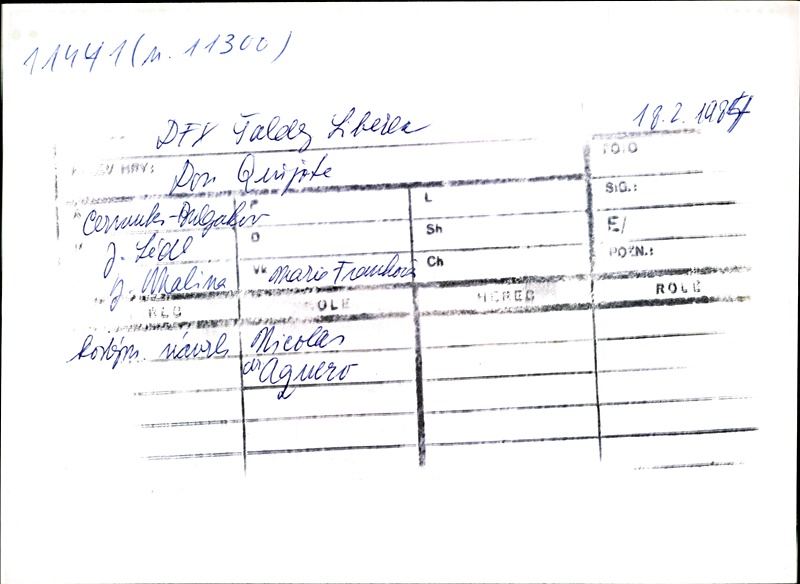 11441 (n. 11300)
18.2. 1984
DFX Faldez Liberec
FOTO
NÁZEV HRY: Don Quijote
SIG.:
Cervantes-Bulgakov P L
E/
J. Sédl O Sh
POZN.:
J. Malina Vk Marie Franková Ch
HEREC ROLE HEREC ROLE
kostým. návrh Nicolas
de Aguero